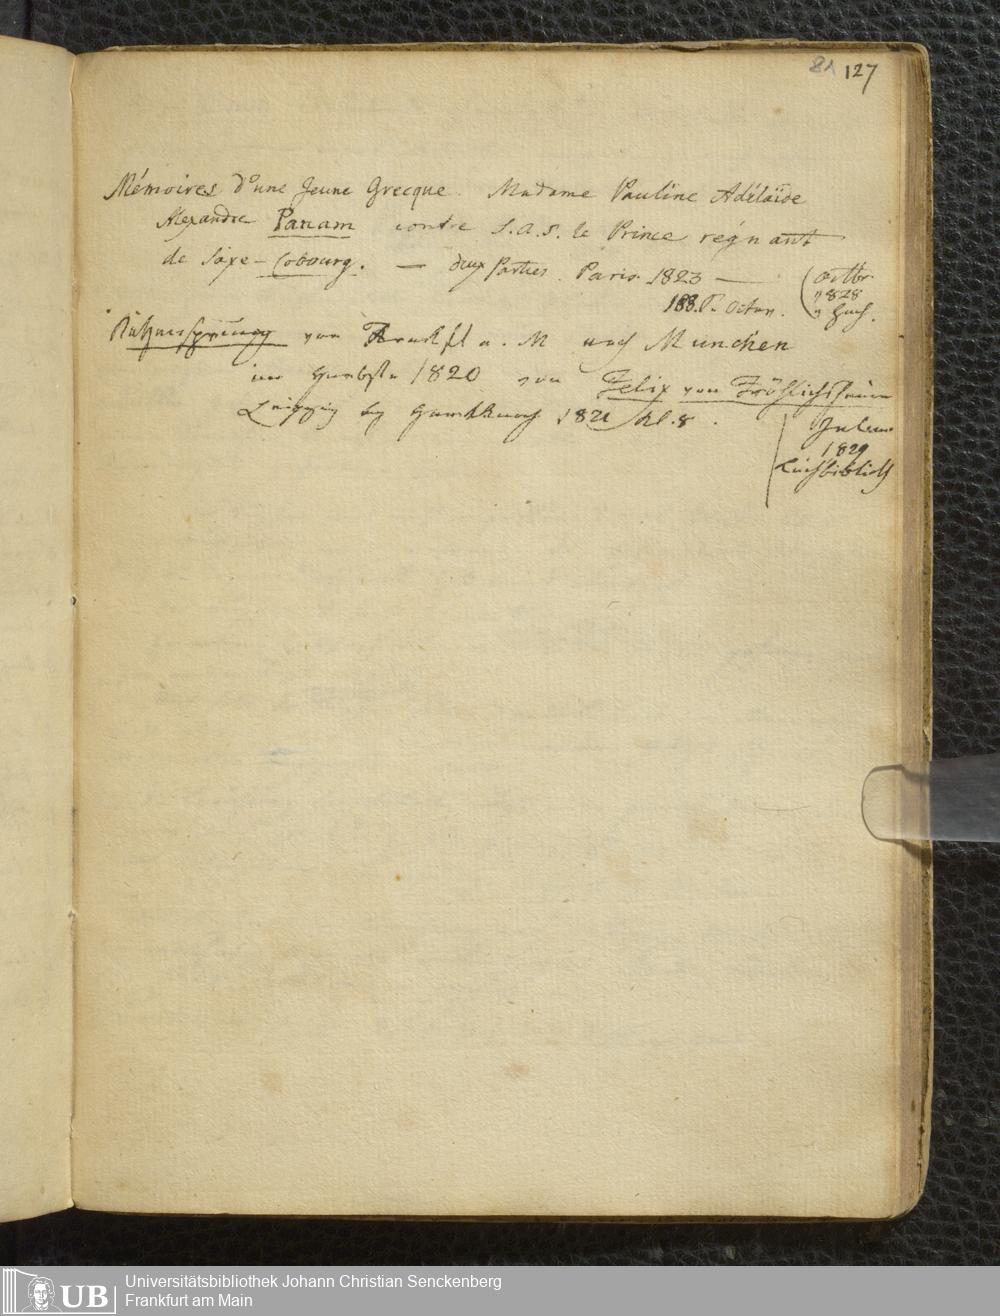 81 127
Mémoires d'une Jeune Grecque. Madame Pauline Adélaïde
Alexandre Panam contre S.A.S. le Prince regnant
de Saxe-Cobourg. — deux Parties. Paris. 1823 —
188. P. Octav.
(Octbr.
1828
von Frankf. a. M nach München
im Herbste 1820 von Felix von Fröhlichsheim
Leipzig by Hartknoch 1821 kl. 8.
1829
Leihbiblioth
Universitätsbibliothek Johann Christian Senckenberg
Frankfurt am Main
UB